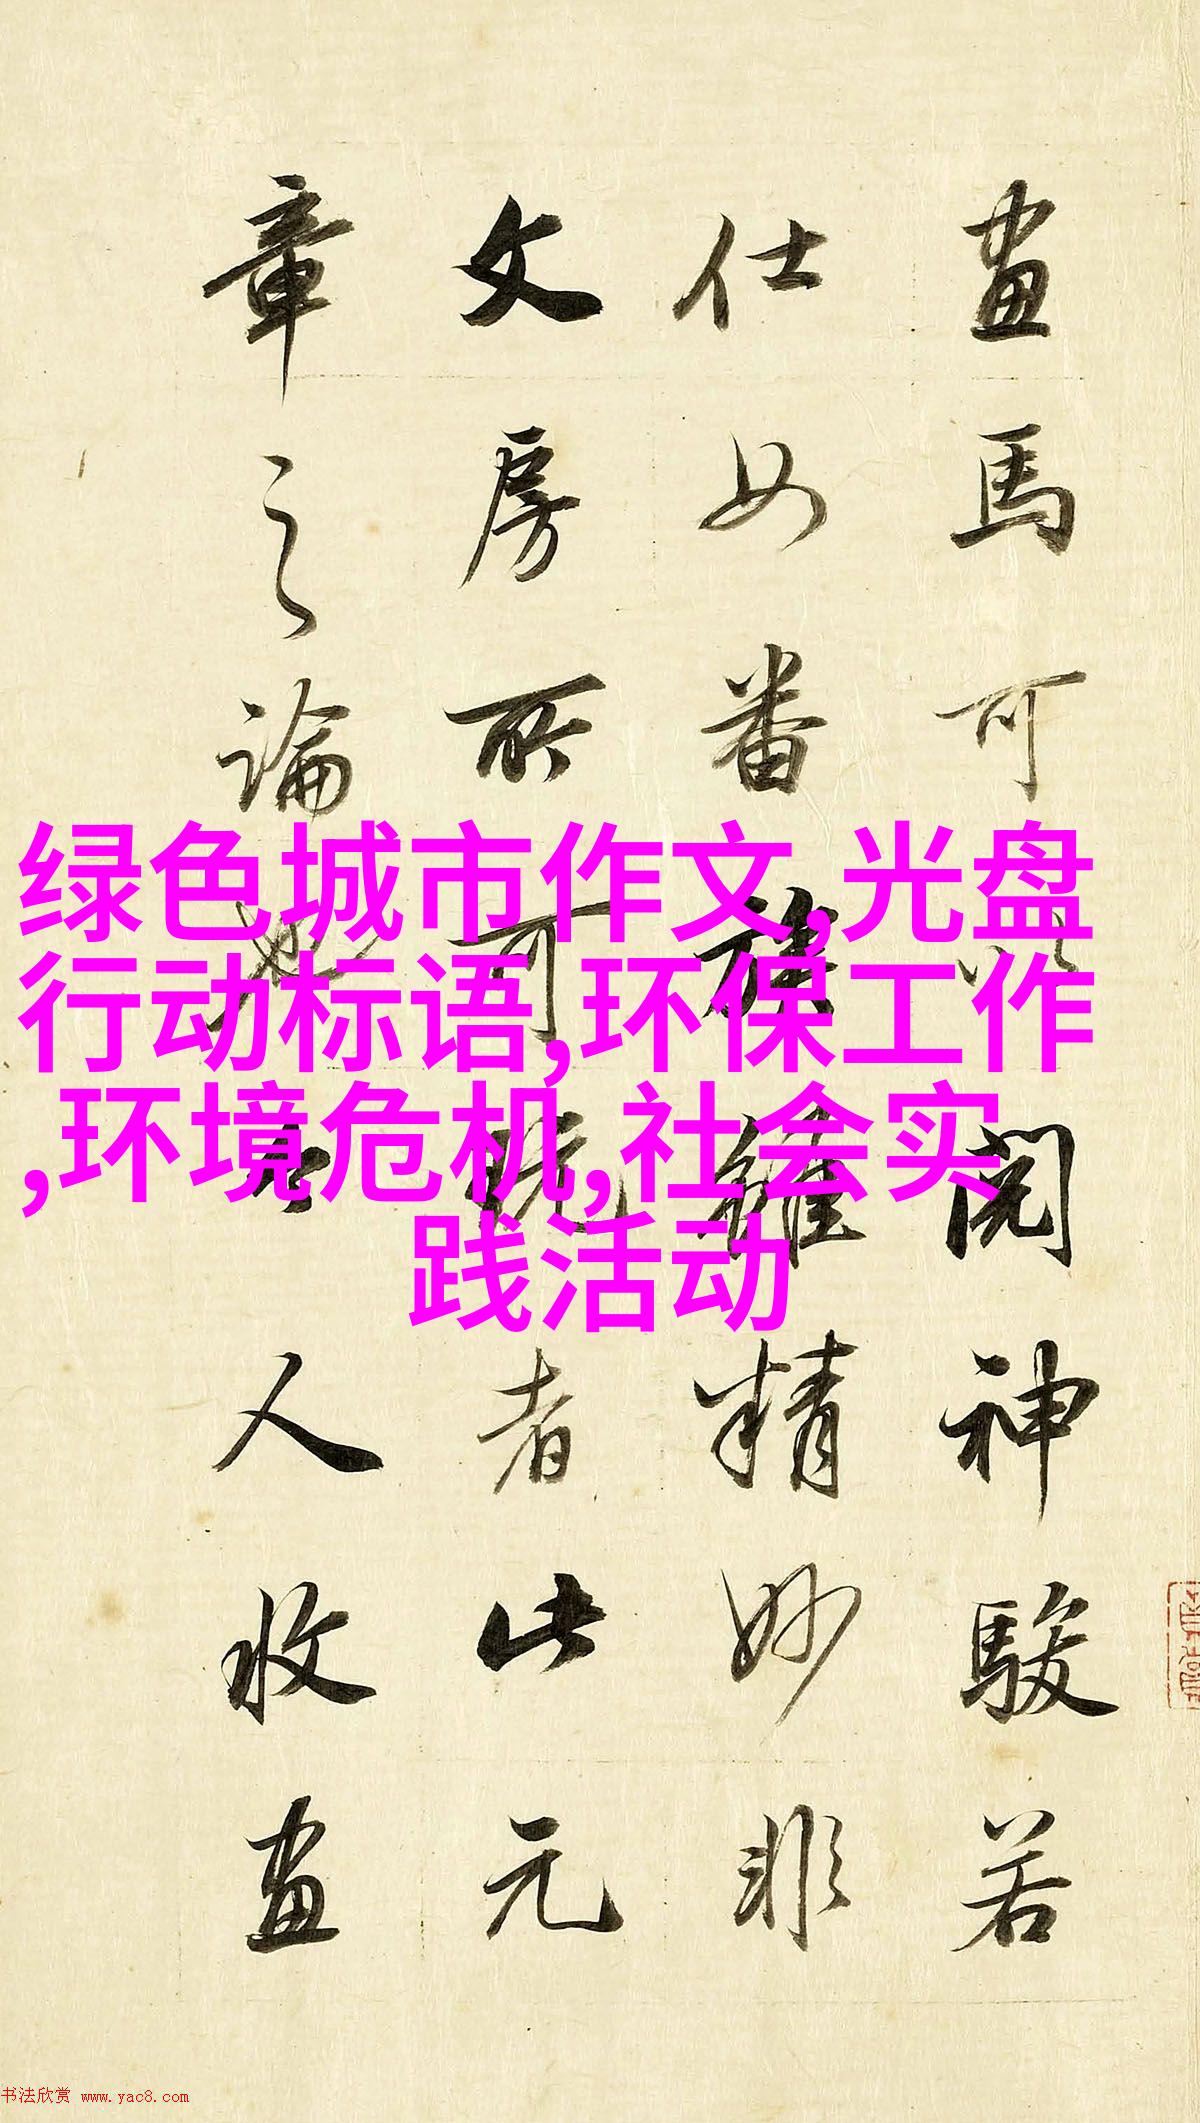 畫馬可以閱神駿若
仕女番族雖精妙非
文房所可玩者此元
章之論也古人收畫
绿色城市作文,光盘
行动标语,环保工作
,环境危机,社会实
践活动
书法欣赏 www.yac8.com